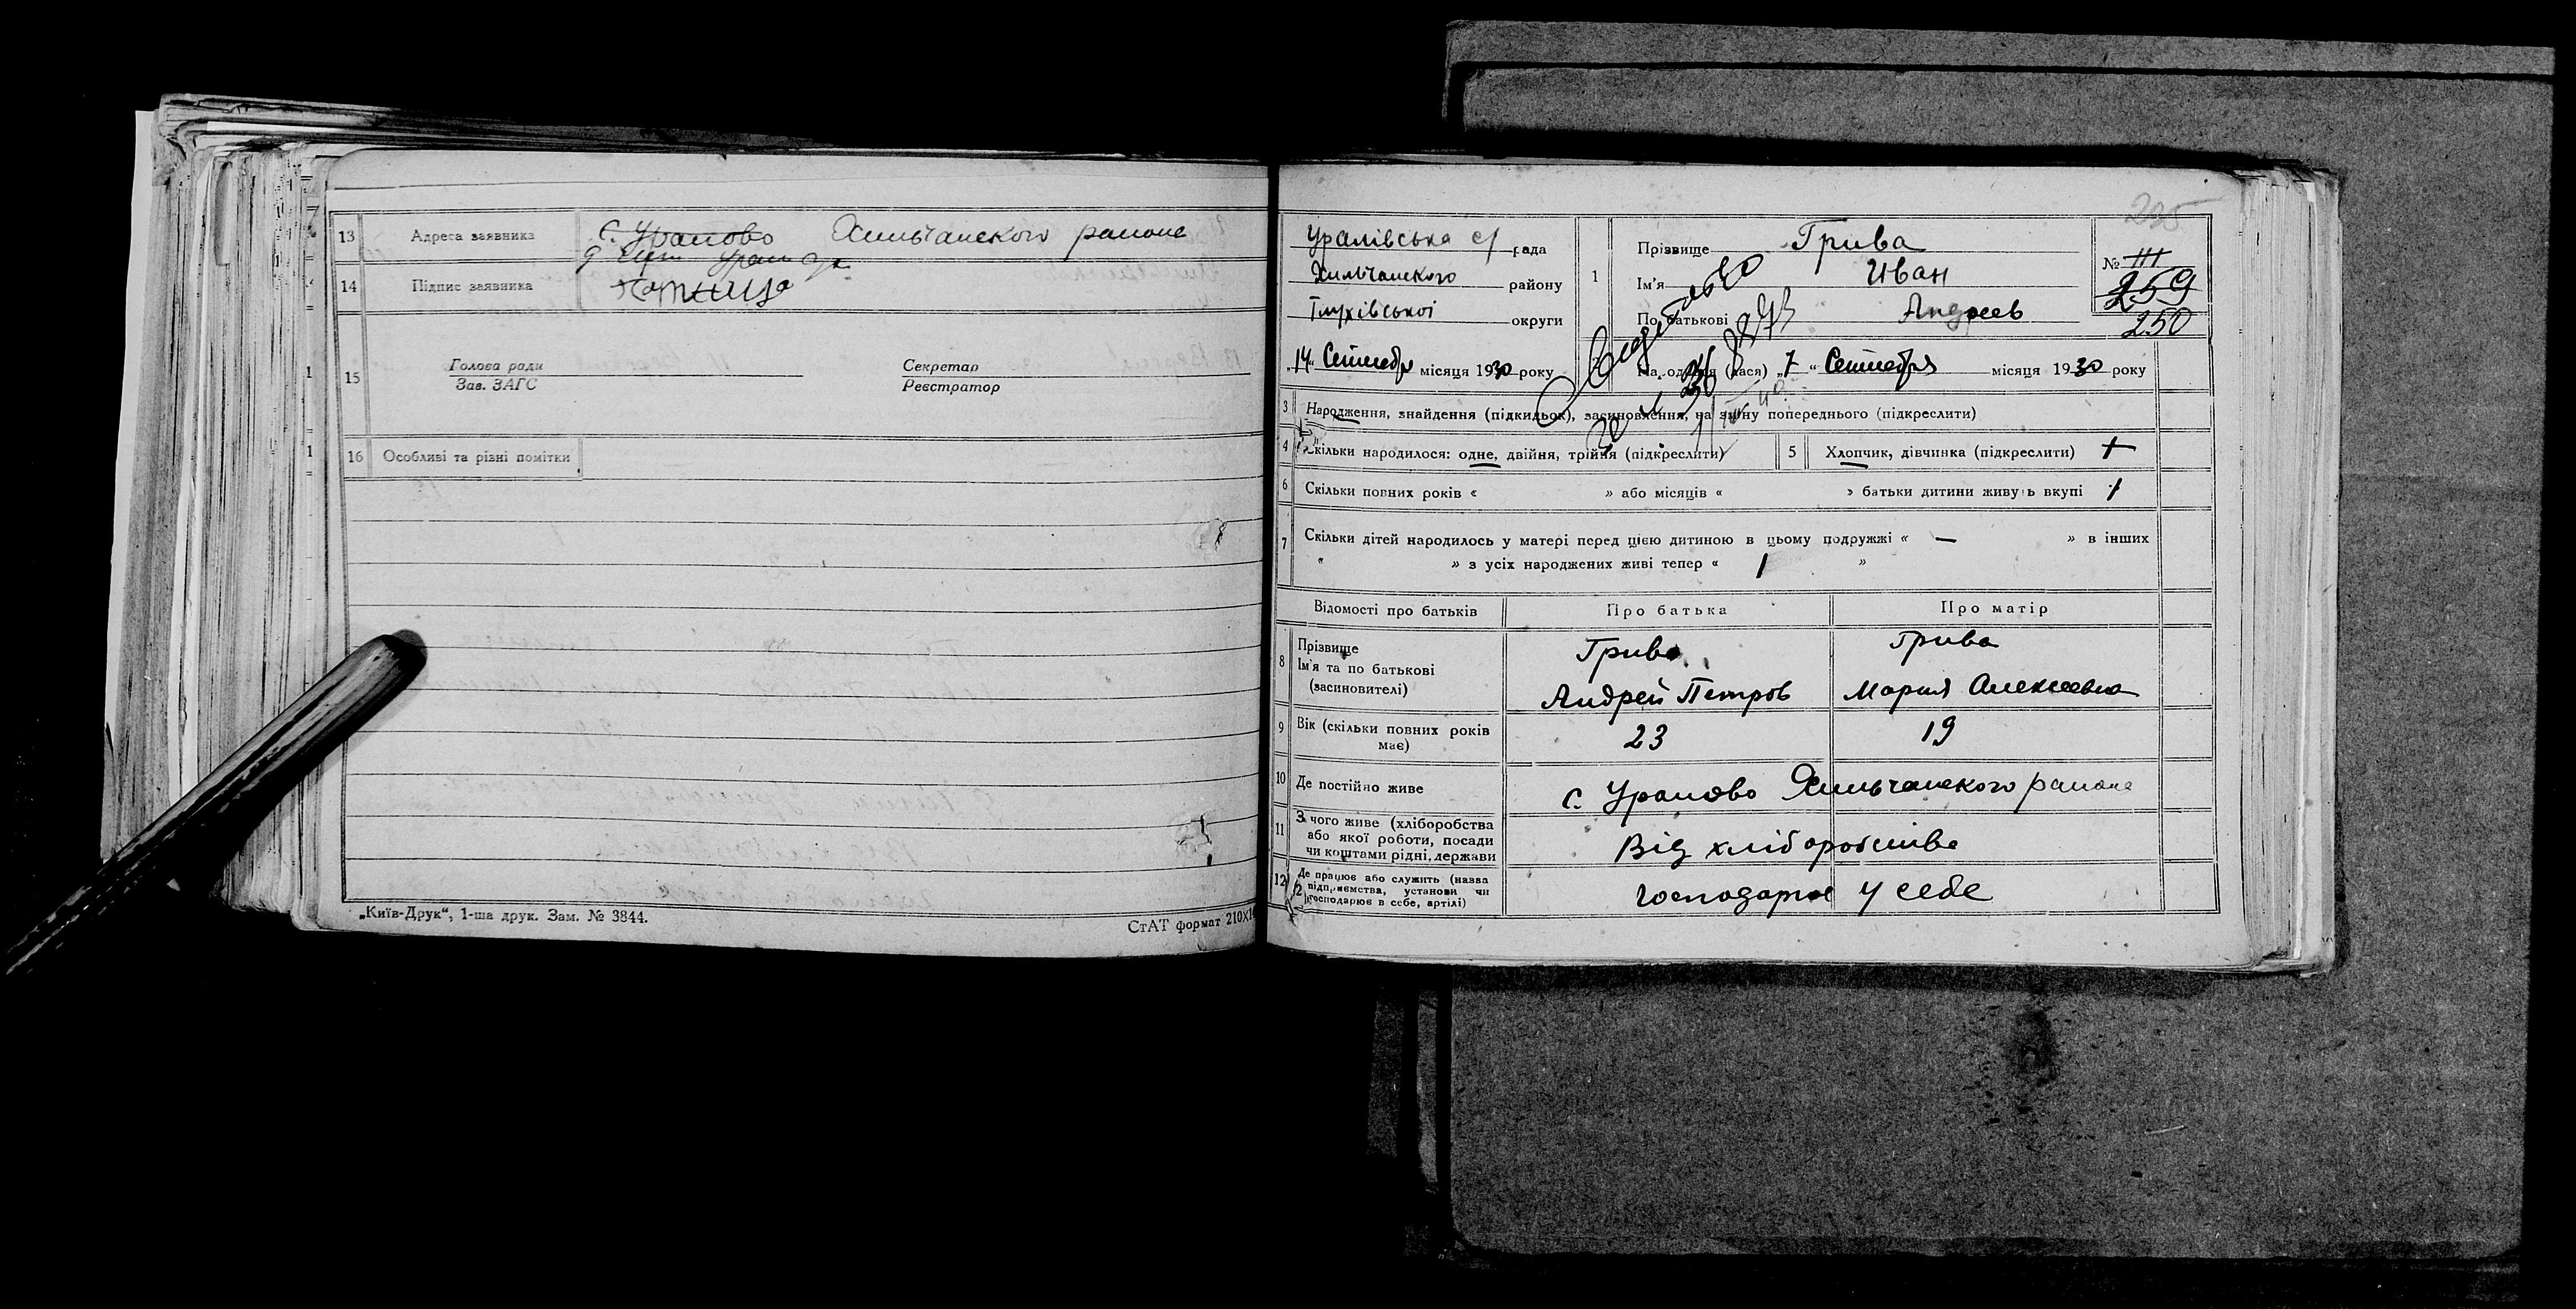 13 Адреса заявника с. Уралово Хильчанского района
14 Підпис заявника
15 Голова ради Секретар
Зав. ЗАГС Реєстратор
16 Особливі та різні помітки
„Київ-Друк“, 1-ша друк. Зам. № 3844.
СтАТ формат 210Х1
235
Уралівська с/ рада
Хильчанского району
Глухівської округи
1 Прізвище Грива
Ім'я Иван
По батькові Андреев
№ III
259
250
„14“ Сентебр місяця 1930 року
На одився (лася) „7“ Сентебря місяця 1930 року
3 Народження, знайдення (підкидьок), засиновлення, на зміну попереднього (підкреслити)
4 Скільки народилося: одне, двійня, трійня (підкреслити) 5 Хлопчик, дівчинка (підкреслити) +
6 Скільки повних років « » або місяців « » батьки дитини живуть вкупі 1
7 Скільки дітей народилось у матері перед цією дитиною в цьому подружжі « — » в інших
« » з усіх народжених живі тепер « 1 »
Відомості про батьків Про батька Про матір
8 Прізвище Грива Грива
Ім'я та по батькові
(засиновителі) Андрей Петров Мария Алексеевна
9 Вік (скільки повних років має) 23 19
10 Де постійно живе с. Уралово Хильчанского района
11 З чого живе (хліборобства
або якої роботи, посади
чи коштами рідні, держави Від хліборобства
12 Де працює або служить (назва
підприємства, установи чи
господарює в себе, артілі) господарює у себе